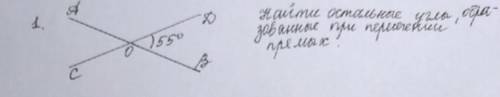 1.
А
D
О
55°
С
В
Найти остальные углы, обра-
зованные при пересечении
прямых.